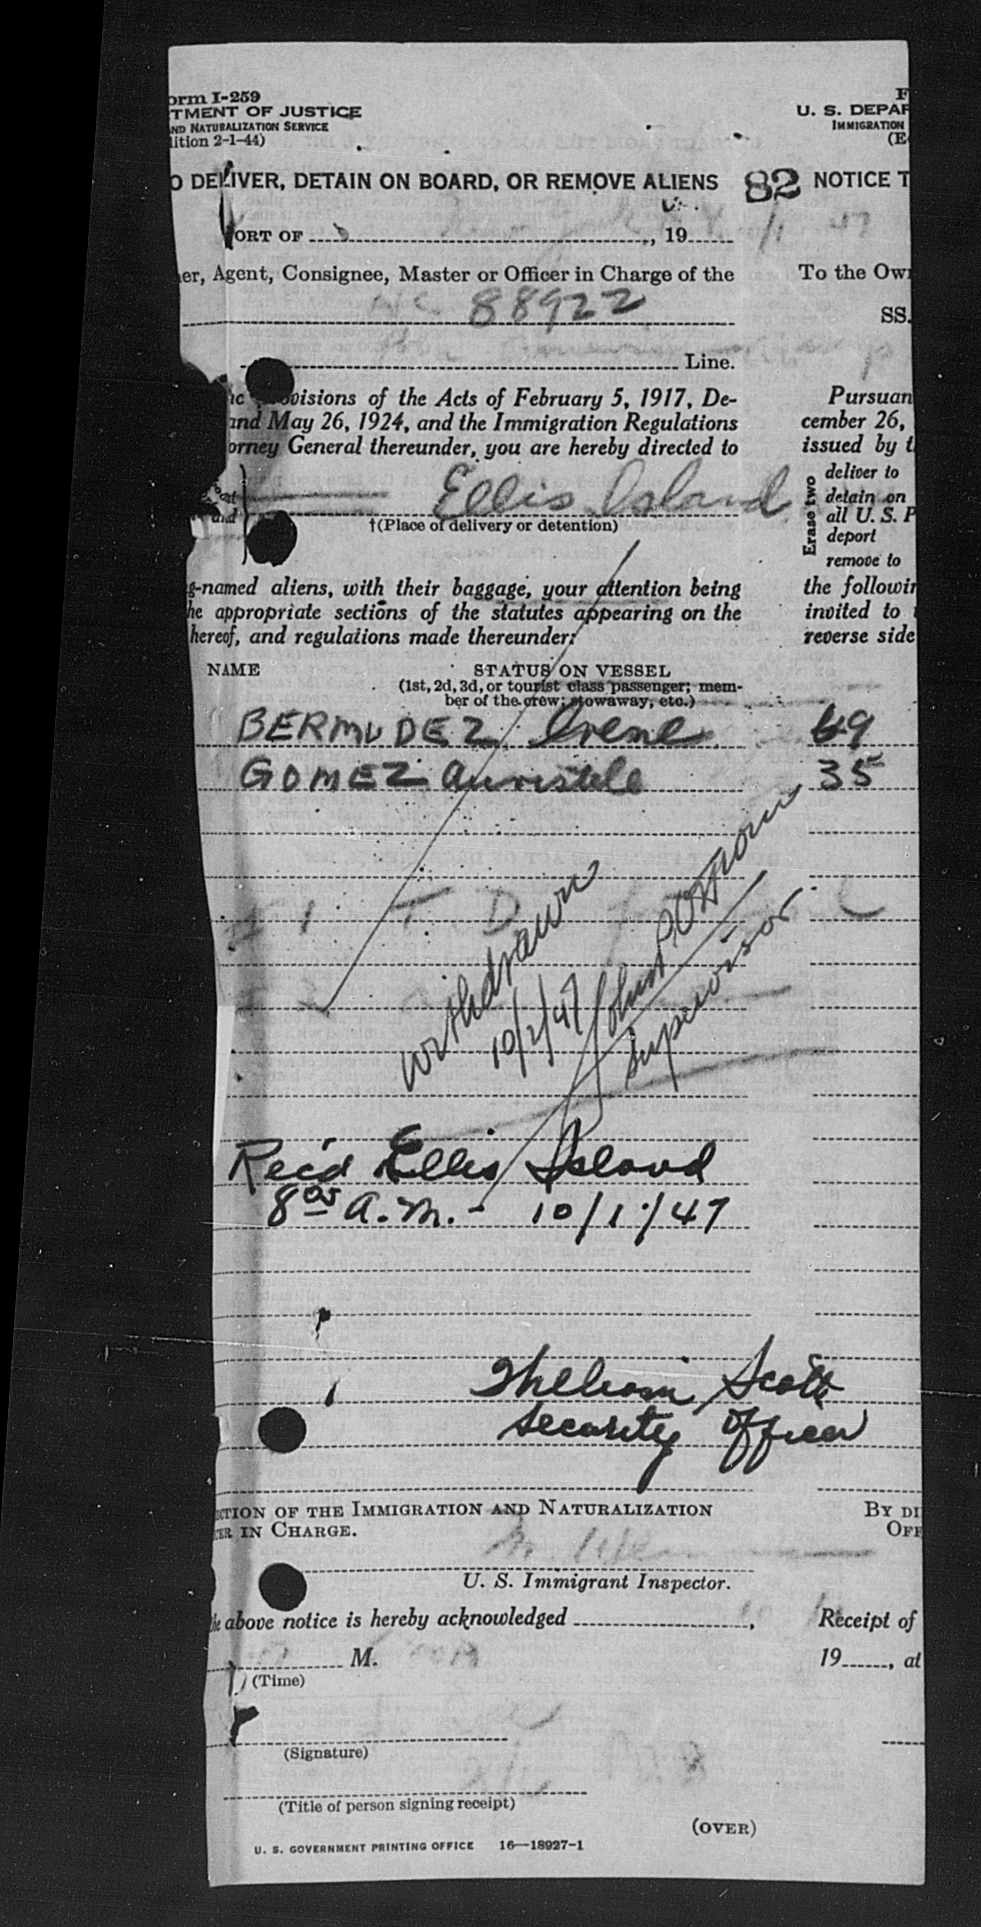 orm I-259
TMENT OF JUSTICE
ND NATURALIZATION SERVICE
lition 2-1-44)
F
U. S. DEPAR
IMMIGRATION
(E
O DELIVER, DETAIN ON BOARD, OR REMOVE ALIENS 82 NOTICE T
PORT OF , 19 47
er, Agent, Consignee, Master or Officer in Charge of the To the Own
NC 88922 SS.
Line.
visions of the Acts of February 5, 1917, De- Pursuan
and May 26, 1924, and the Immigration Regulations cember 26,
orney General thereunder, you are hereby directed to issued by t
Ellis Island
†(Place of delivery or detention)
Erase two
deliver to
detain on
all U. S. P
deport
remove to
g-named aliens, with their baggage, your attention being the followin
he appropriate sections of the statutes appearing on the invited to
hereof, and regulations made thereunder: reverse side
NAME STATUS ON VESSEL
(1st, 2d, 3d, or tourist class passenger; mem-
ber of the crew; stowaway, etc.)
BERMUDEZ, Irene 69
GOMEZ 35
withdrawn
10/2/47
Supervisor
Rec'd Ellis Island
8 05 A.M. - 10/1/47
Scott
Security Officer
CTION OF THE IMMIGRATION AND NATURALIZATION BY DI
ER IN CHARGE. OFF
U. S. Immigrant Inspector.
he above notice is hereby acknowledged , Receipt of
M. 19 , at
(Time)
(Signature)
(Title of person signing receipt)
(OVER)
U. S. GOVERNMENT PRINTING OFFICE 16—18927-1